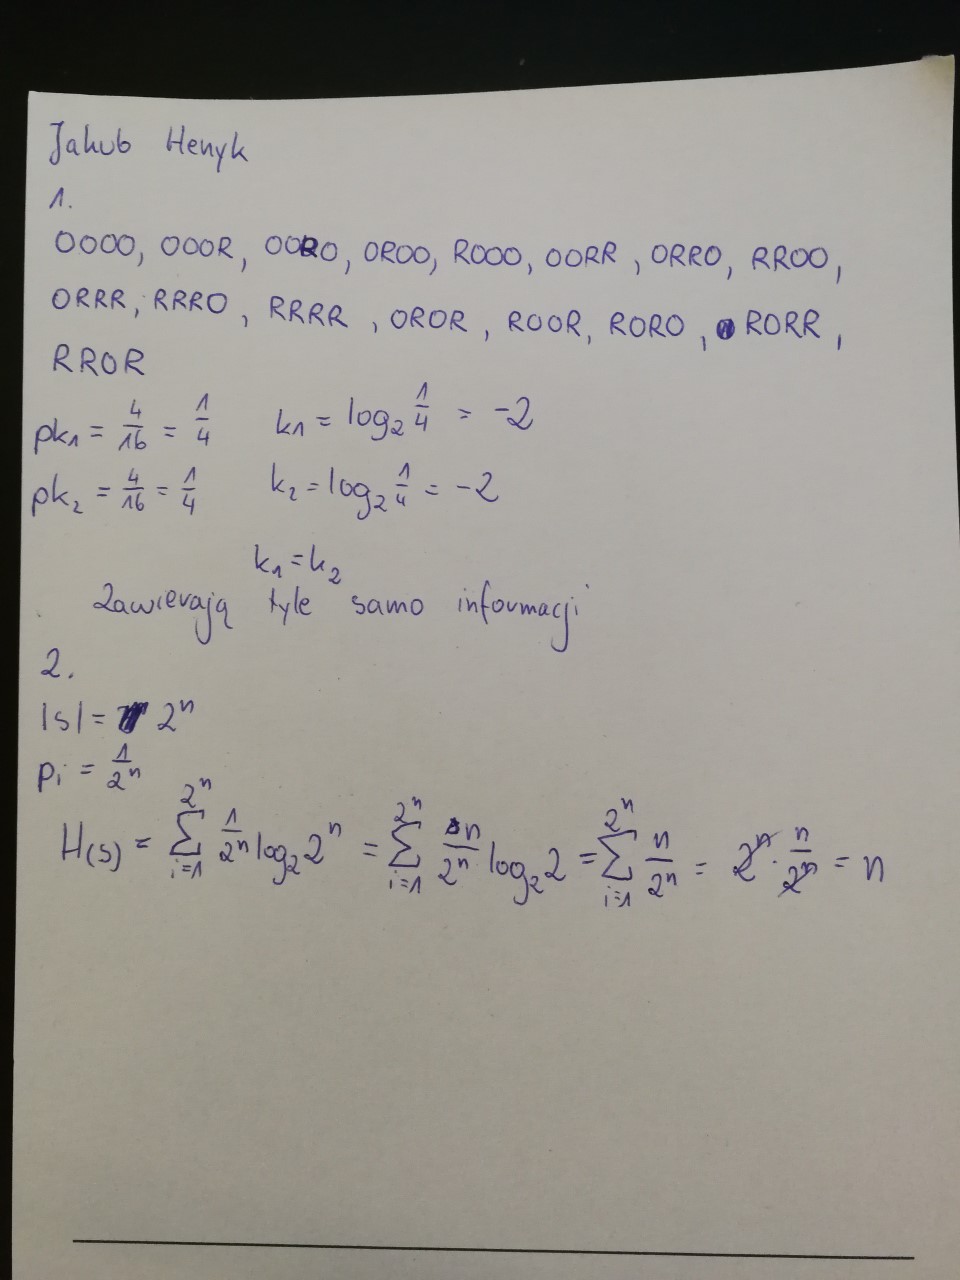 Jakub Henyk
1.
OOOO, OOOR, OORO, OROO, ROOO, OORR, ORRO, RROO,
ORRR, RRRO, RRRR, OROR, ROOR, RORO, RORR,
RROR
pk₁ = 4/16 = 1/4 k₁ = log₂ 1/4 = -2
pk₂ = 4/16 = 1/4 k₂ = log₂ 1/4 = -2
k₁ = k₂
Zawierają tyle samo informacji
2.
|s| = 2ⁿ
pᵢ = 1/2ⁿ
H(s) = ∑_{i=1}^{2ⁿ} 1/2ⁿ log₂ 2ⁿ = ∑_{i=1}^{2ⁿ} n/2ⁿ log₂ 2 = ∑_{i=1}^{2ⁿ} n/2ⁿ = 2ⁿ · n/2ⁿ = n